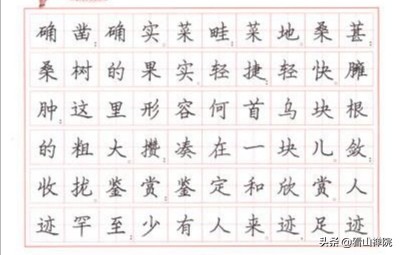 确凿确实菜畦菜地桑葚
桑树的果实轻捷轻快臃
肿这里形容何首乌块根
的粗大攒凑在一块儿敛
收拢鉴赏鉴定和欣赏人
迹罕至少有人来迹足迹
头条@眉山禅院